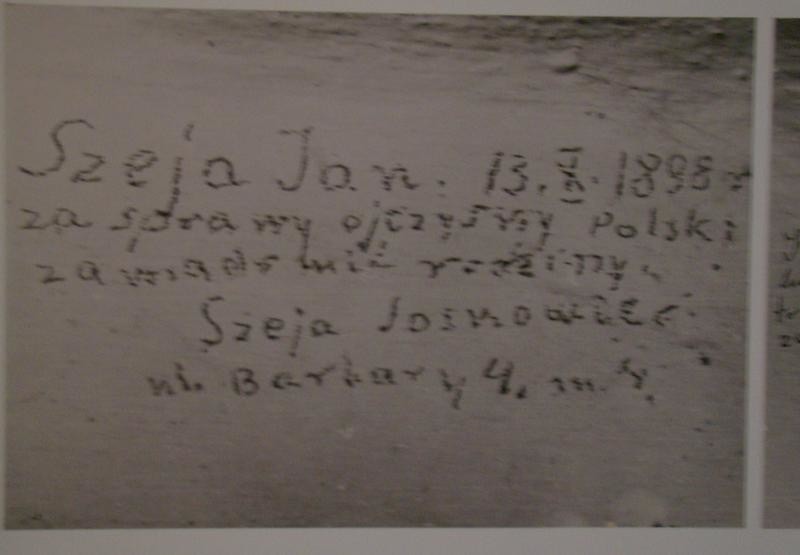 Szeja Jan. 13.II.1898 r
za sprawy ojczyzny Polski
zawiadomić rodziny.
Szeja Sosnowiec
ul. Barbary 4. m. 4.